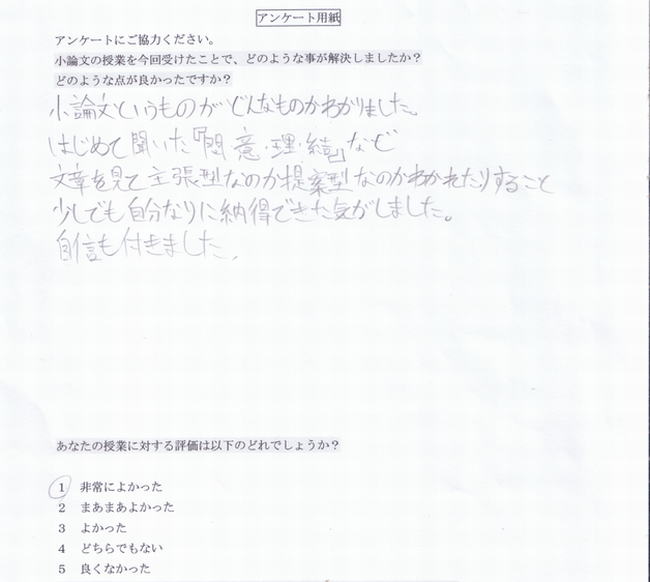 アンケート用紙
アンケートにご協力ください。
小論文の授業を今回受けたことで、どのような事が解決しましたか?
どのような点が良かったですか?
小論文というものがどんなものかわかりました。
はじめて聞いた『問・意・理・結』など
文章を見て主張型なのか提案型なのかわかれたりすること
少しでも自分なりに納得できた気がしました。
自信も付きました。
あなたの授業に対する評価は以下のどれでしょうか?
1 非常によかった
2 まあまあよかった
3 よかった
4 どちらでもない
5 良くなかった